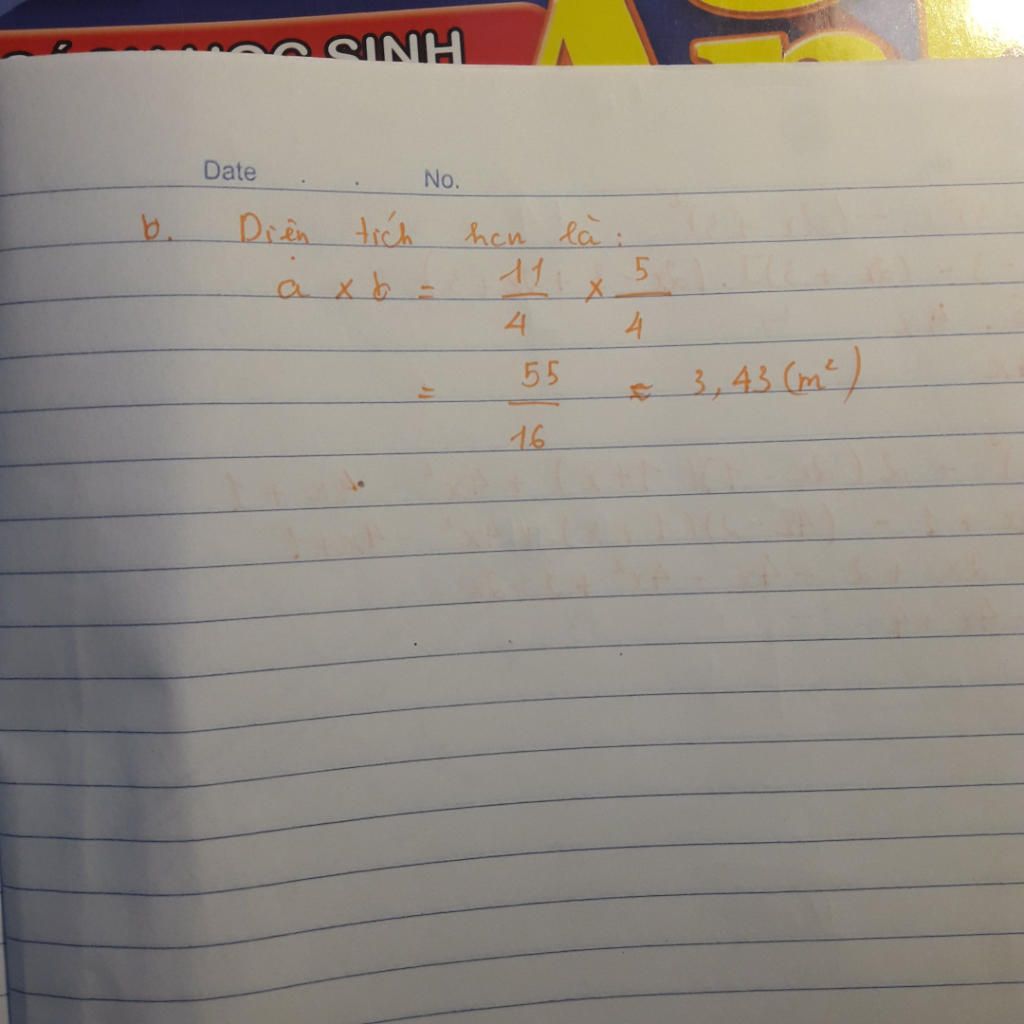 SINH
Date . . No.
b. Diện tích hcn là:
a x b = 11/4 x 5/4
= 55/16 ≈ 3,43 (m²)